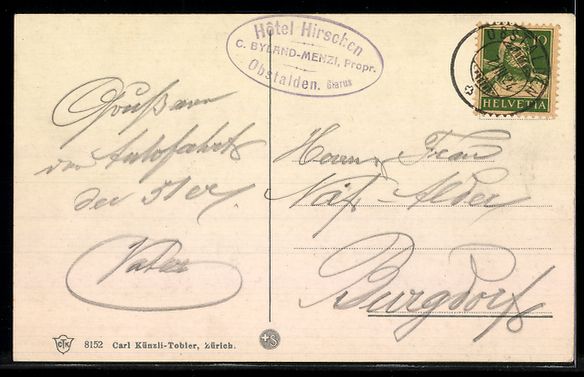 Hôtel Hirschen
C. BYLAND-MENZI, Propr.
Obstalden. Glarus
10
HELVETIA
Gruss von
der Autofahrt
der 51er
Vater
Herrn & Frau
Näf-Alder
Burgdorf
CTK 8152 Carl Künzli-Tobler, Zürich.
+S